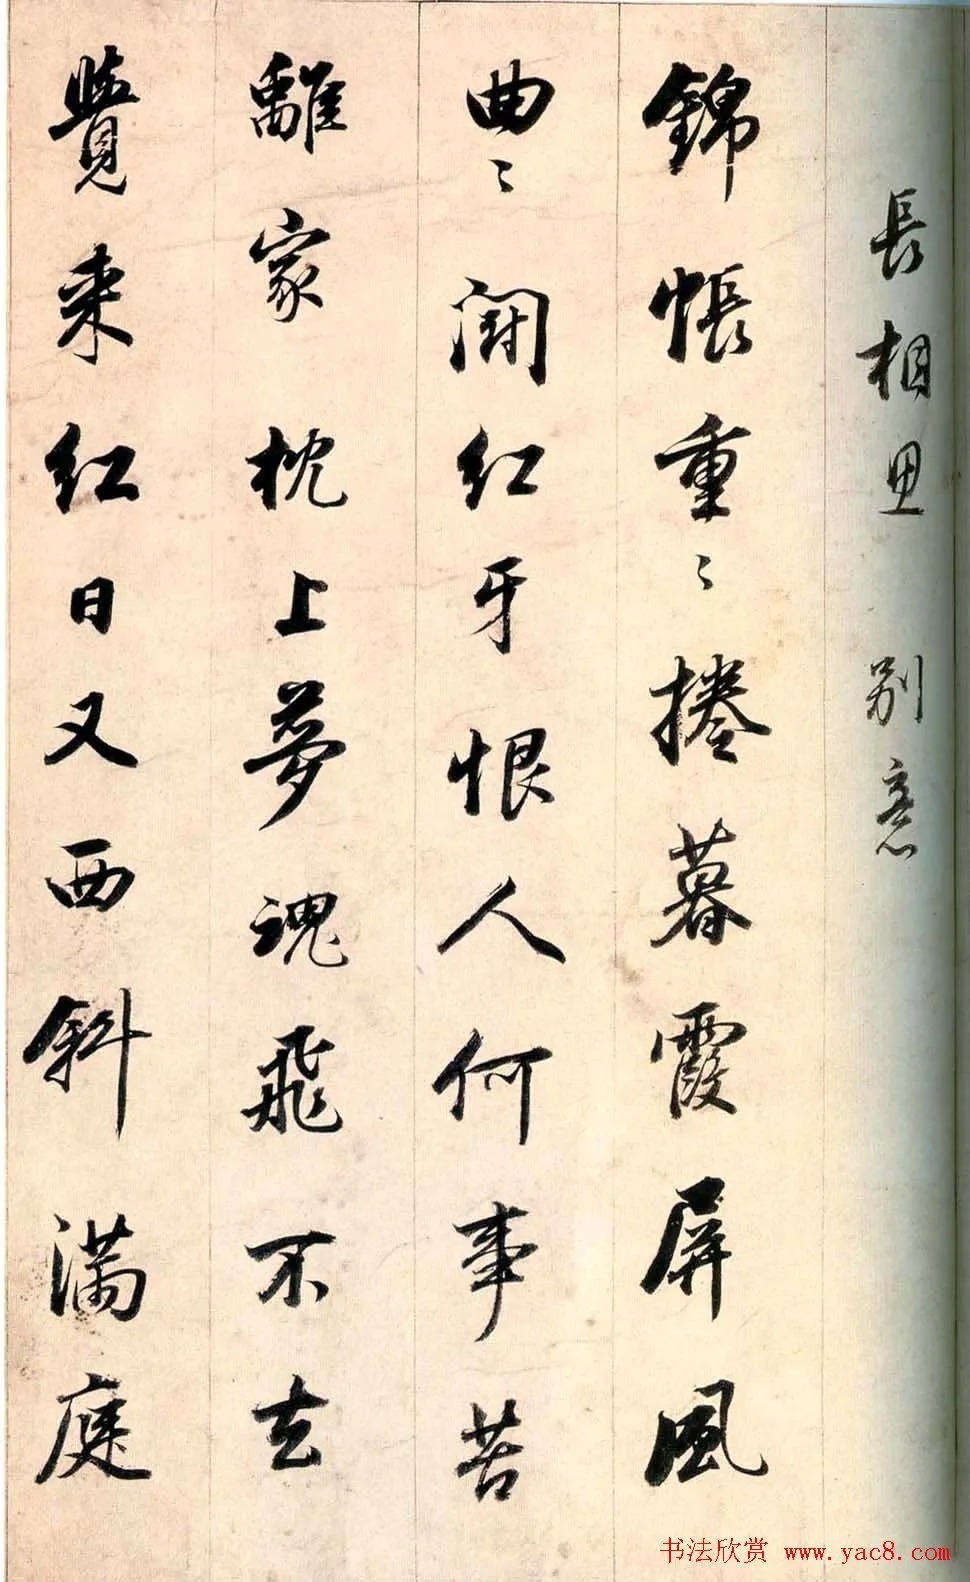 長相思 别意
錦帳重〻捲暮霞屏風
曲〻鬪红牙恨人何事苦
離家枕上夢魂飛不去
覺来红日又西斜滿庭
书法欣赏 www.yac8.com